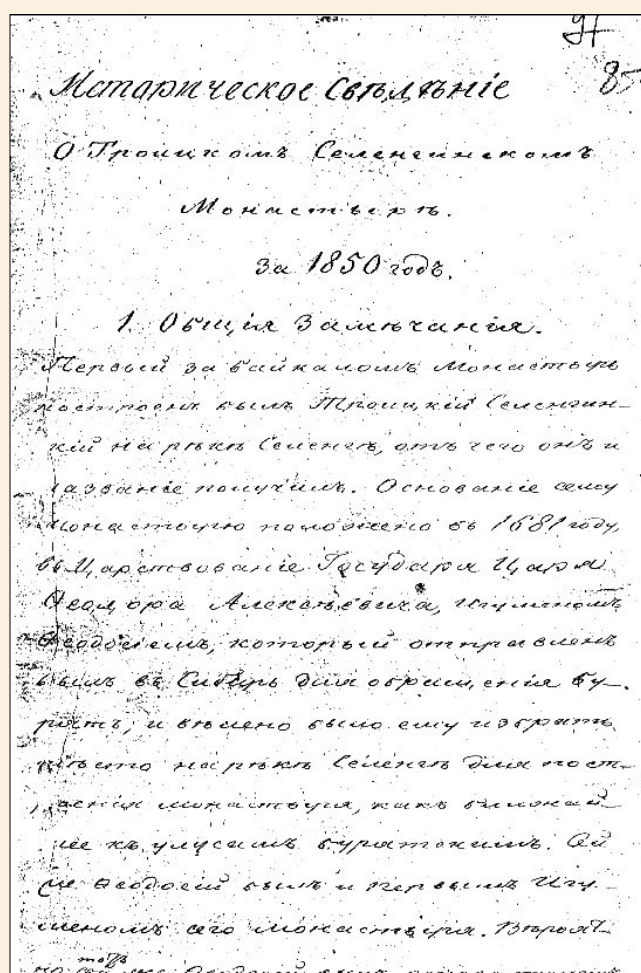 97
85
Историческое Свѣдѣніе
О Троицкомъ Селенгинскомъ
Монастырѣ.
за 1850 годъ.
1. Общія Замѣчанія.
Первый за байкаломъ Монастырь
построенъ былъ Троицкій Селенгин-
кій на рѣкѣ Селенгѣ, отъ чего онъ и
названіе получилъ. Основаніе сему
монастырю положено въ 1681 году,
въ Царствованіе Государя Царя
Ѳеодора Алексѣевича, Игуменомъ
Ѳеодосіемъ, который отправленъ
былъ въ Сибирь для обращенія бу-
рятъ, и велено было ему избрать
мѣсто на рѣкѣ Селенгѣ для пост-
роенія монастыря, какъ ближай-
шее къ улусамъ бурятскимъ. Сей
же Ѳеодосій былъ и первымъ Игу-
меномъ сего монастыря. Вѣроят-
но тотъ же Ѳеодосій былъ